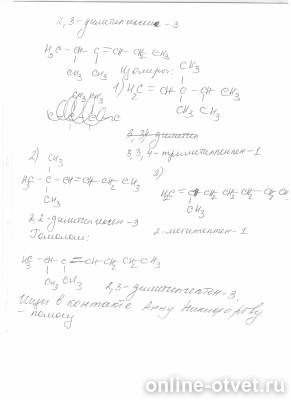 2,3-диметилгексен-3
H3C – CH – C = CH – CH2 – CH3
CH3 CH3
Изомеры:
CH3
1) H2C = CH – C – CH – CH3
CH3 CH3
3,3,4-триметилпентен-1
2) CH3
H3C – C – CH = CH – CH2 – CH3
CH3
2,2-диметилгексен-3
3)
H2C = C – CH2 – CH2 – CH2 – CH2 – CH3
CH3
2-метилгептен-1
Гомологи:
H3C – CH – C = CH – CH2 – CH2 – CH3
CH3 CH3
2,3-диметилгептен-3.
Ищи в контакте Анну Никифорову
- помогу
online-otvet.ru